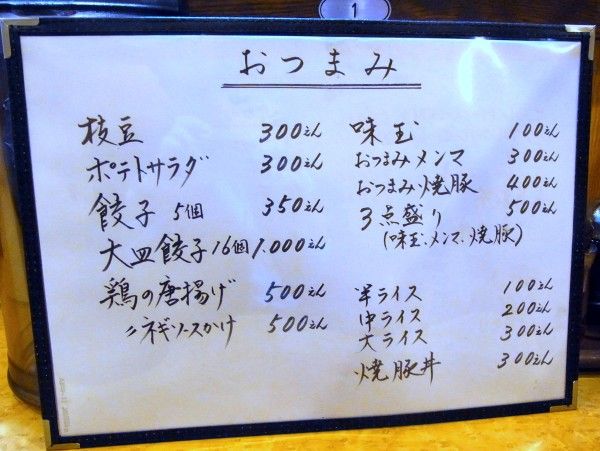 1
おつまみ
枝豆 300えん
ポテトサラダ 300えん
餃子 5個 350えん
大皿餃子16個 1.000えん
鶏の唐揚げ 500えん
〃ネギソースかけ 500えん
味玉 100えん
おつまみメンマ 300えん
おつまみ焼豚 400えん
3点盛り 500えん
(味玉、メンマ、焼豚)
半ライス 100えん
中ライス 200えん
大ライス 300えん
焼豚丼 300えん